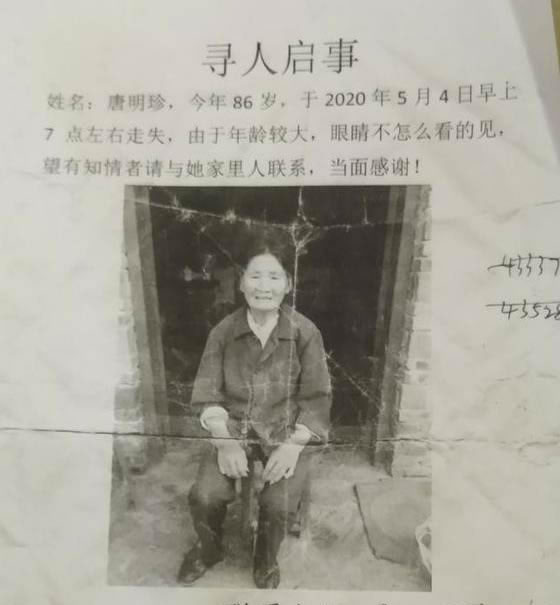 寻人启事
姓名：唐明珍，今年86岁，于2020年5月4日早上
7 点左右走失，由于年龄较大，眼睛不怎么看的见，
望有知情者请与她家里人联系，当面感谢！
45537
45528